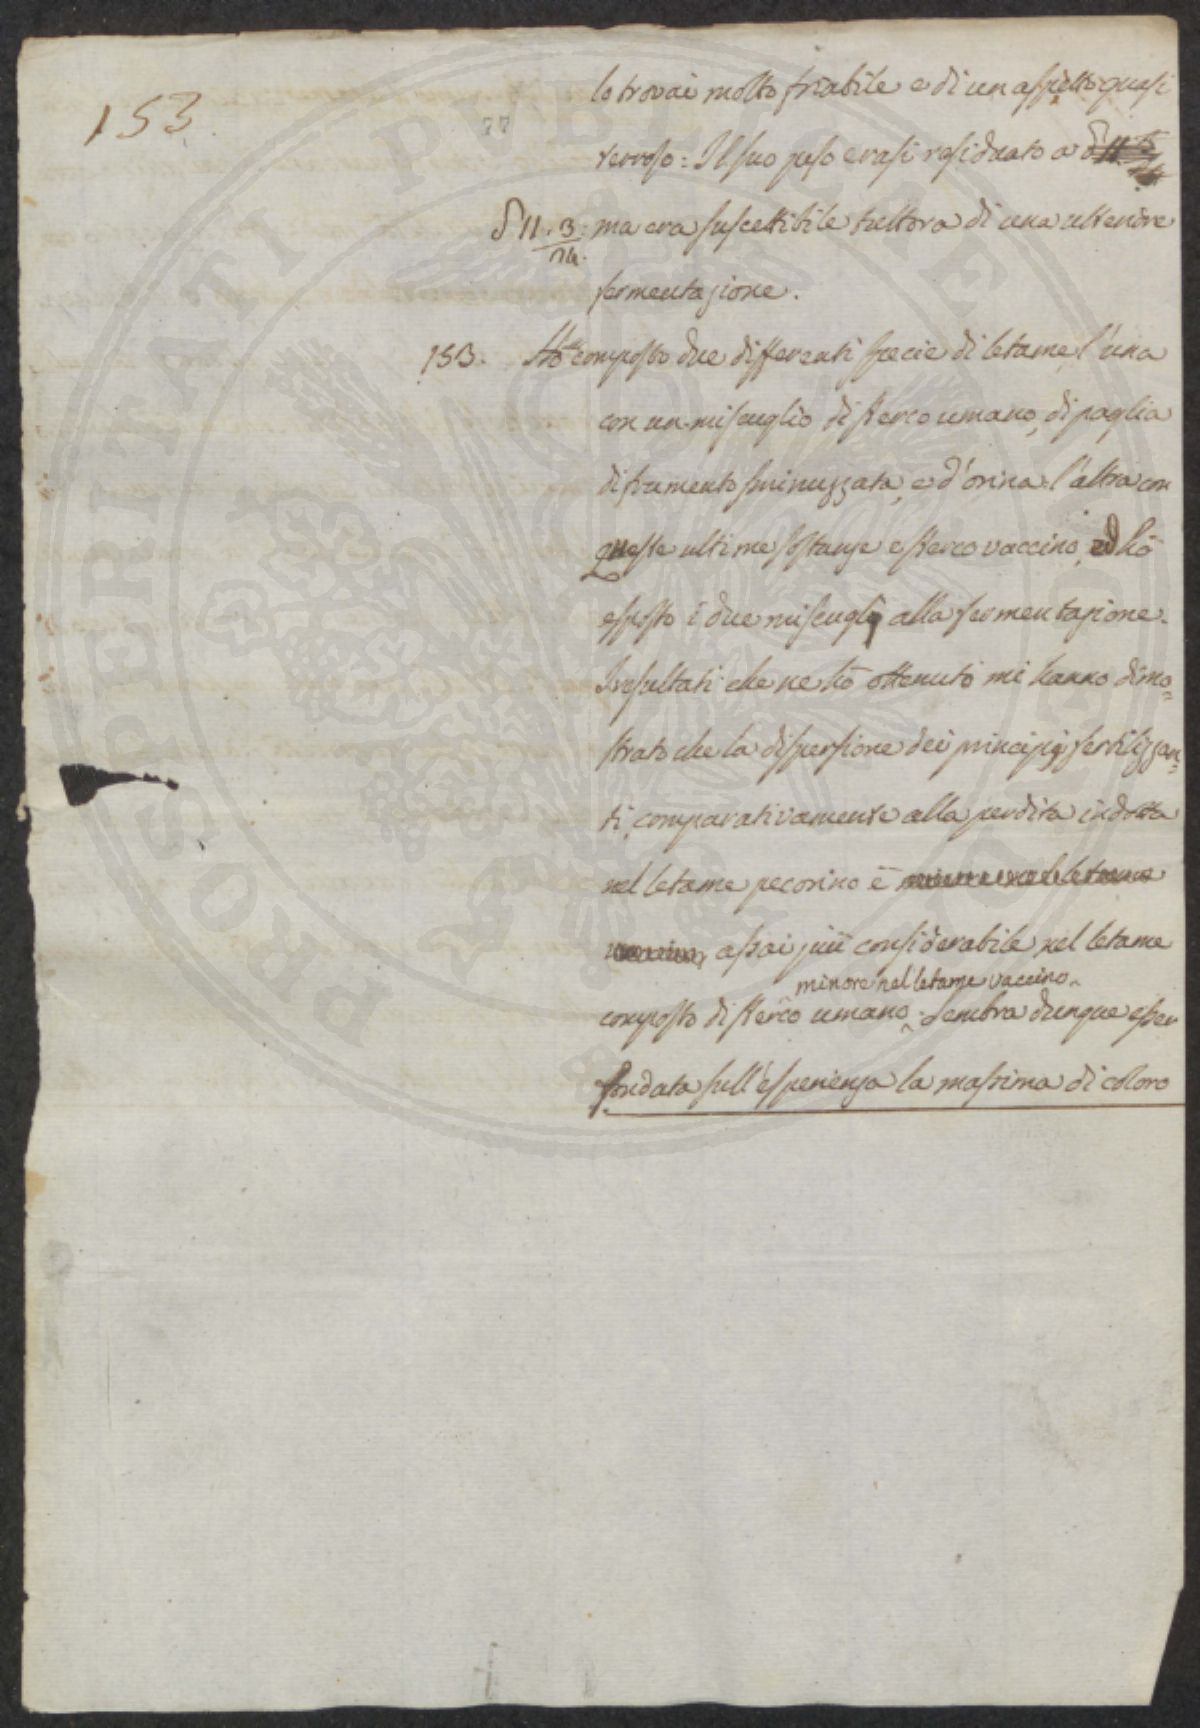 153.
77
lo trovai molto friabile e di un aspetto quasi
terroso: Il suo peso erasi residuato a
11. 3/24. ma era suscettibile tuttora di una ulteriore
fermentazione.
153. Ho composto due differenti specie di letame, l'una
con un miscuglio di sterco umano, di paglia
di frumento sminuzzata, e d'orina: l'altra con
queste ultime sostanze e sterco vaccino, ed hò
esposto i due miscuglj alla fermentazione.
I resultati che ne hò ottenuto mi hanno dimo=
strato che la dispersione dei principj fertilizzan=
ti, comparativamente alla perdita indotta
nel letame pecorino è
assai più considerabile nel letame
minore nel letame vaccino.
composto di sterco umano. Sembra dunque esser
fondata sull'esperienza la massima di coloro
POSTERITATI PVBLICAE